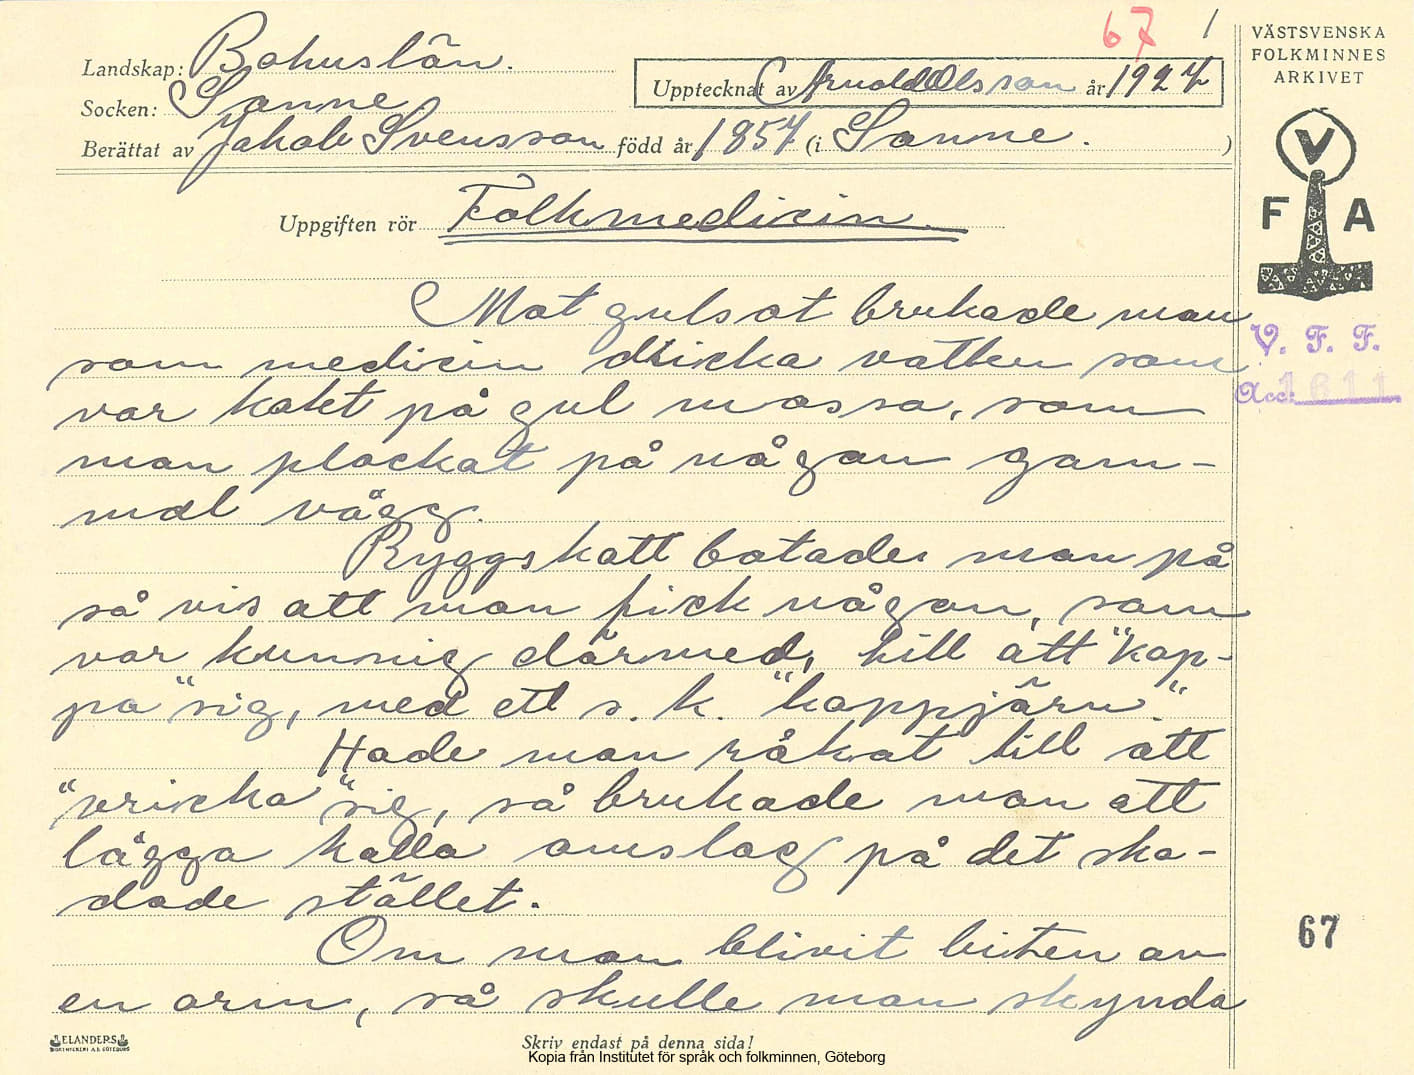 67 1
VÄSTSVENSKA
FOLKMINNES
ARKIVET
Landskap: Bohuslän.
Upptecknat av Arnold Olsson år 1927
Socken: Sanne
Berättat av Jakob Svensson född år 1857 (i Sanne. )
V
F A
Uppgiften rör Folkmedicin.
V. F. F.
Acc. 1611
Mot gulsot brukade man
som medicin dricka vatten som
var kokt på gul mossa, som
man plockat på någon gam-
mal vägg.
Ryggskott botades man på
så vis att man fick någon, som
var kunnig därmed, till att "kop-
pa" sig, med ett s.k. "koppjärn".
Hade man råkat till att
"vricka" sig, så brukade man att
lägga kalla omslag på det ska-
dade stället.
Om man blivit biten av
en orm, så skulle man skynda
67
ELANDERS
BOKTRYCKERI A.B. GÖTEBORG
Skriv endast på denna sida!
Kopia från Institutet för språk och folkminnen, Göteborg